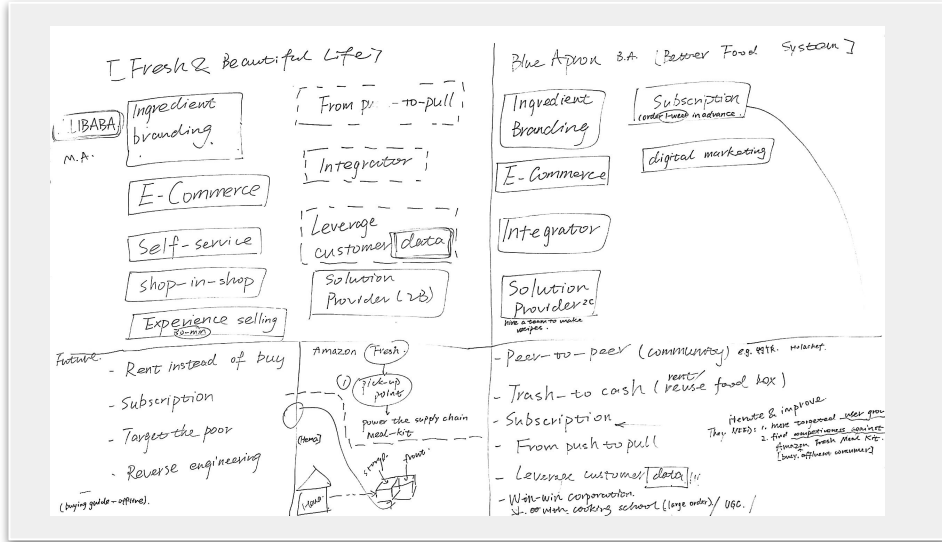 [Fresh & Beautiful Life]
LIBABA
M.A.
Ingredient
branding
E-Commerce
Self-service
shop-in-shop
Experience selling
30-min
From -to-pull
Integrator
Leverage
customer data
Solution
Provider (2B)
Blue Apron B.A. [Better Food System]
Ingredient
Branding
E-Commerce
Integrator
Solution
Provider 2C
hire a team to make
recipes.
Subscription
(order 1-week in advance.
digital marketing
Future
- Rent instead of buy
- Subscription
- Target the poor
- Reverse engineering
(buying guide - offline).
Amazon Fresh
① pick-up
point
power the supply chain
Meal-kit
[Hema]
front.
- Peer-to-peer (community) e.g.
- Trash-to cash (rent/reuse food box)
- Subscription
- From push to pull
- Leverage customer data
- Win-win corporation.
with cooking school (large order) / UGC. /
iterate & improve
They NEED: 1. more targeted user grou
2. find competitiveness against
Amazon Fresh Meal Kit.
[busy, affluent consumer]